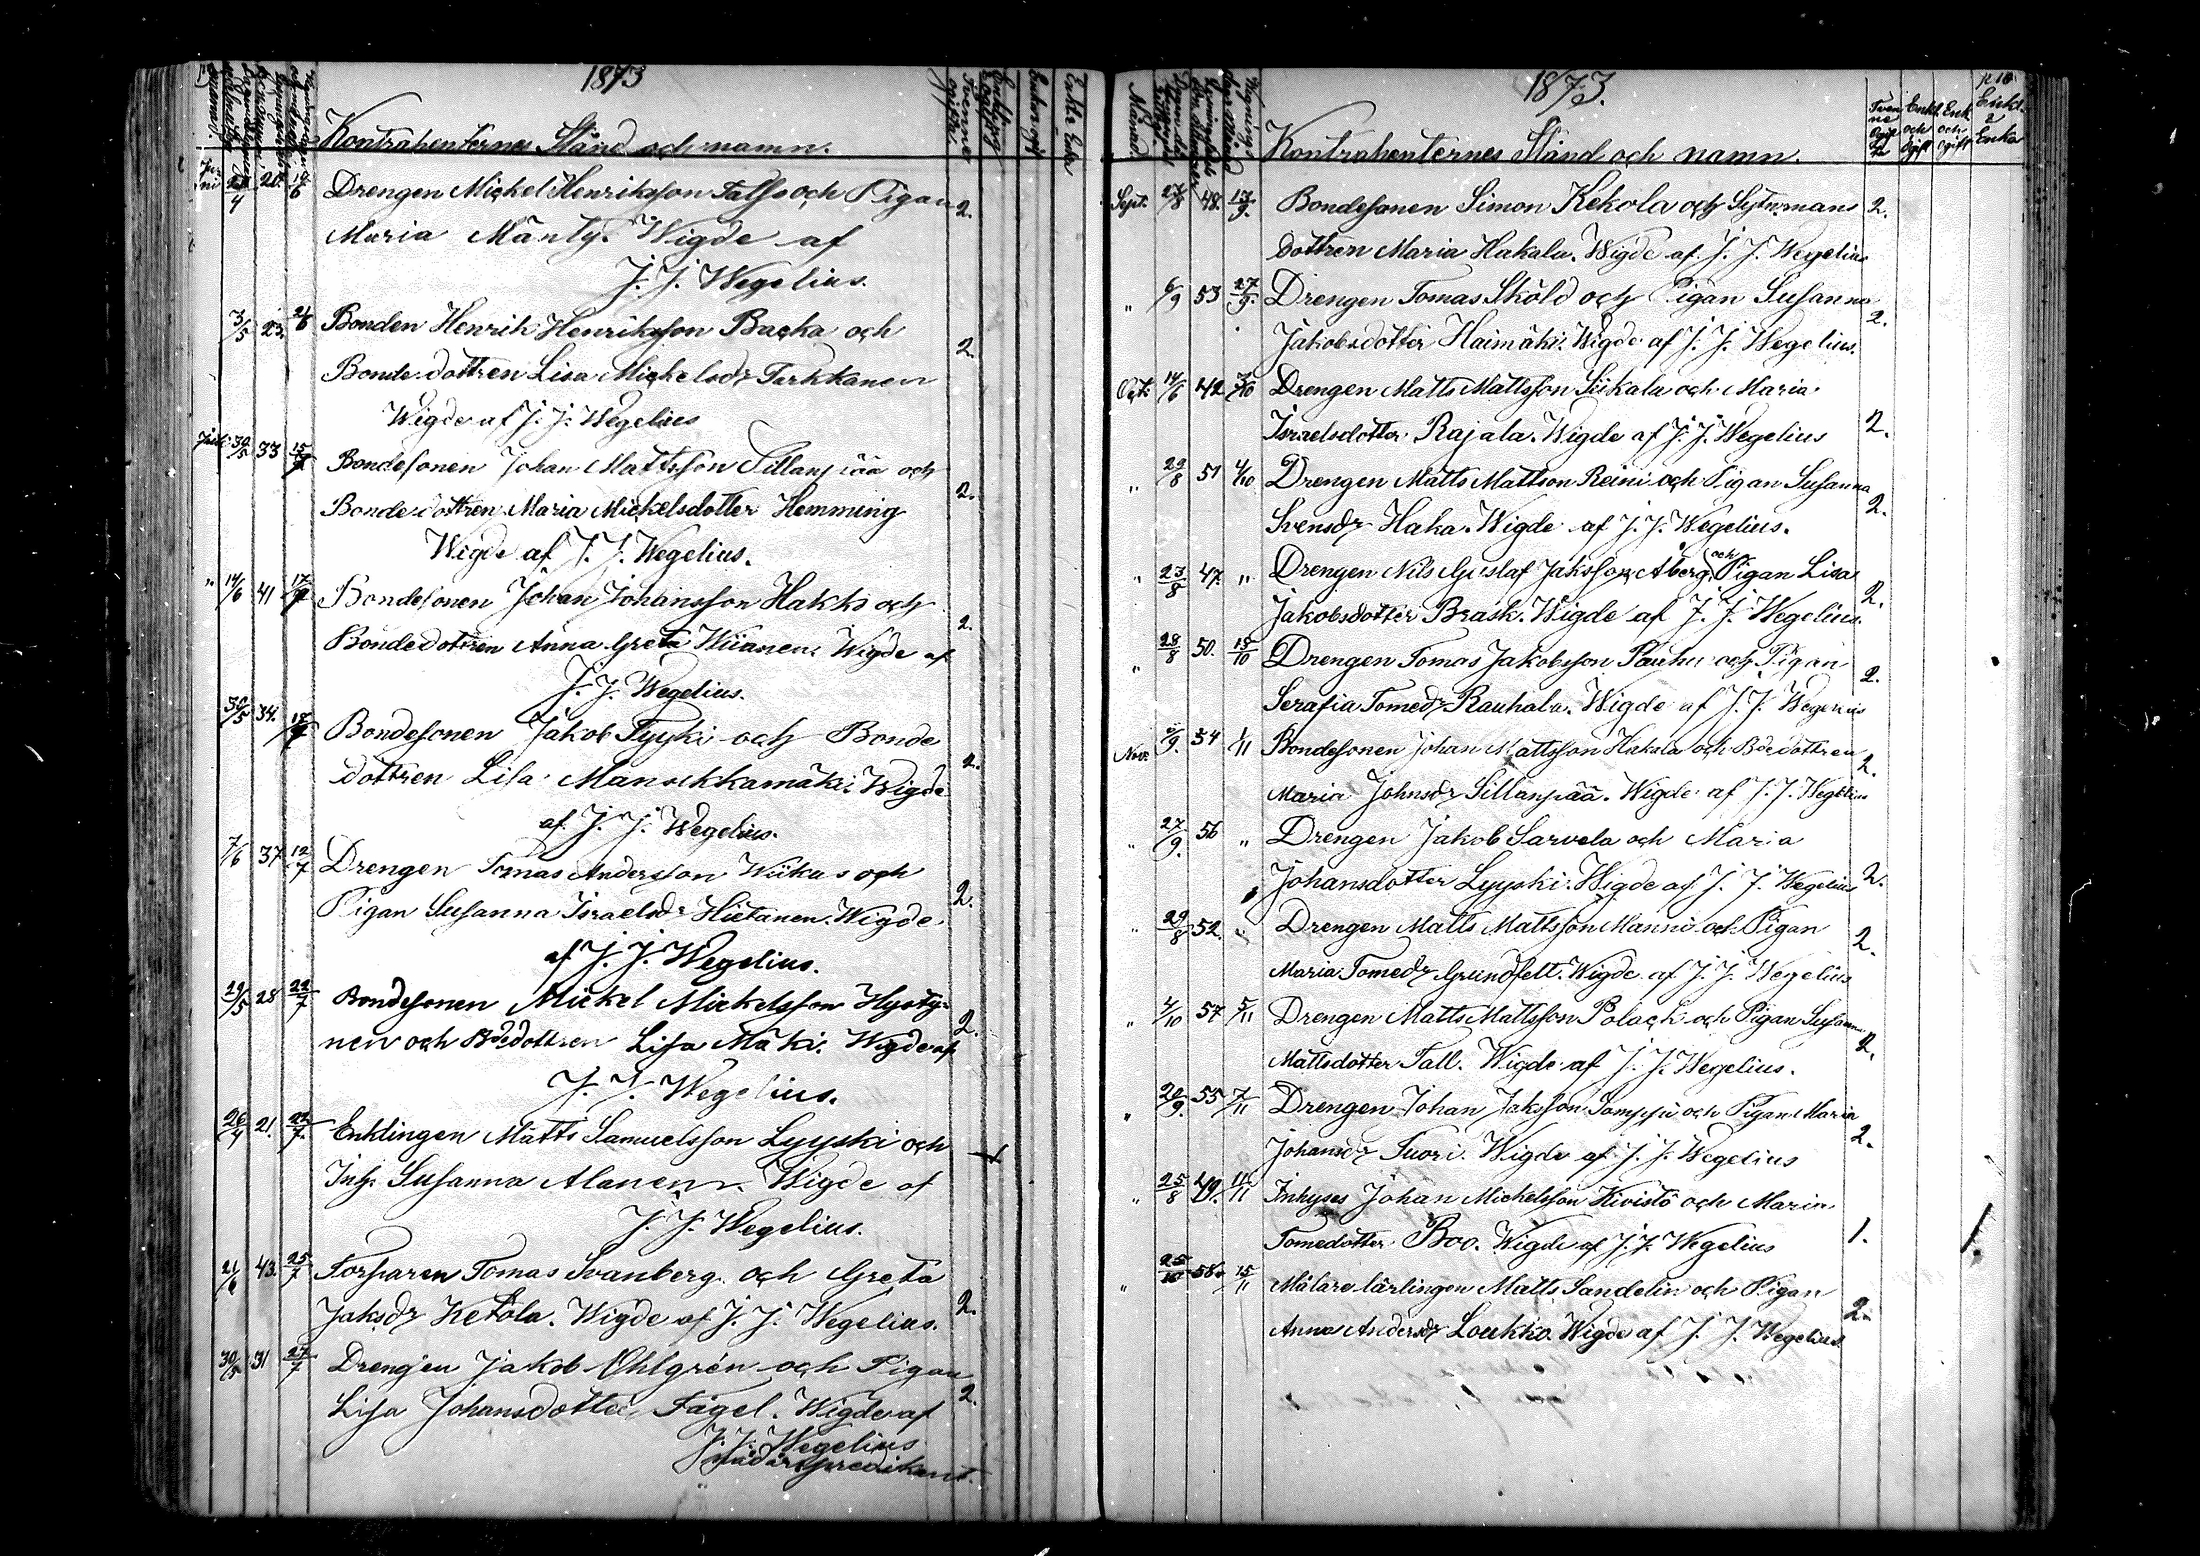 1873
Kontrahenternes Stånd och namn.
Juni 4 20. 19/6 Drengen Mickel Henriksson Falss och Pigan 2.
Maria Mänty. Wigde af
J. J. Wegelius.
3/5 23. 21/6 Bonden Henrik Henriksson Backa och
Bonde dottren Lisa Mickelsdr Tarkkanen 2.
Wigde af J. J. Wegelius
Juli 30/5 33 15/7 Bondesonen Johan Mattsson Sillanpää och
Bonde dottren Maria Mickelsdotter Hemming 2.
Wigde af J. J. Wegelius.
" 14/6 41 17/7 Bondesonen Johan Johansson Hakks och
Bonde dottren Anna Greta Wiianen. Wigde af 2.
J. J. Wegelius.
30/5 34. 18/7 Bondesonen Jakob Tyyki och Bonde
dottren Lisa Manockkamäki. Wigde 2.
af J. J. Wegelius.
7/6 37 12/7 Drengen Tomas Andersson Wiikus och
Pigan Susanna Israelsdr Hietanen. Wigde 2.
af J. J. Wegelius.
29/5 28 22/7 Bondesonen Mickel Mickelsson Hyoty-
nen och Bdedottren Lisa Mäki. Wigde af 2.
J. J. Wegelius.
26/4 21. 22/7. Enklingen Matts Samuelsson Lyyski och
Inh. Susanna Alanen. Wigde af
J. J. Wegelius.
21/6 43. 25/7 Torparen Tomas Svanberg och Greta
Jaksdr Ketola. Wigde af J. J. Wegelius. 2.
30/5 31 27/7 Drengen Jakob Ohlgrén och Pigan
Lisa Johansdotter Fågel. Wigde af 2.
J. J. Wegelius
predikant.
1873.
Kontrahenternes Stånd och namn.
Månad
Enkl. och Ogift
Enk. och Ogift
Enkl. a Enka
Sept. 23/8 48. 17/9. Bondesonen Simon Kekola och Sytnmans 2.
dottren Maria Hakala. Wigde af J. J. Wegelius
" 6/9 53 27/9. Drengen Tomas Sköld och Pigan Susanna
Jakobsdotter Haimäki. Wigde af J. J. Wegelius. 2.
Oct. 14/6 42 3/10 Drengen Matts Mattsson Siikala och Maria
Israelsdotter Rajala. Wigde af J. J. Wegelius 2.
" 29/8 51 4/10 Drengen Matts Mattson Reini och Pigan Susanna
Svensdr Haka. Wigde af J. J. Wegelius. 2.
" 23/8 47. " Drengen Nils Gustaf Jaksson Åberg och Pigan Lisa
Jakobsdotter Brask. Wigde af J. J. Wegelius. 2.
" 28/8 50. 18/10 Drengen Tomas Jakobsson Pauhu och Pigan
Serafia Tomedr Rauhala. Wigde af J. J. Wegelius 2.
Nov. 6/9. 54 1/11 Bondesonen Johan Mattsson Hakala och Bdedottren
Maria Johnsdr Sillanpää. Wigde af J. J. Wegelius 2.
" 27/9. 56 " Drengen Jakob Sarvela och Maria
Johansdotter Lyyski. Wigde af J. J. Wegelius 2.
" 29/8 52. " Drengen Matts Mattsson Mannio och Pigan
Maria Tomedr Grundfelt. Wigde af J. J. Wegelius 2.
" 4/10 57 5/11 Drengen Matts Mattsson Polack och Pigan Susanna
Mattsdotter Tall. Wigde af J. J. Wegelius. 2.
" 20/9. 55 7/11 Drengen Johan Jaksson Samppu och Pigan Maria
Johansdr Tuori. Wigde af J. J. Wegelius 2.
" 25/8 49. 11/11 Inhyses Johan Mickelsson Kivistö och Maria
Tomedotter Boo. Wigde af J. J. Wegelius 1. 1.
" 25/10 58. 15/11 Målare lärlingen Matts Sandelin och Pigan
Anna Andersdr Loukko. Wigde af J. J. Wegelius. 2.